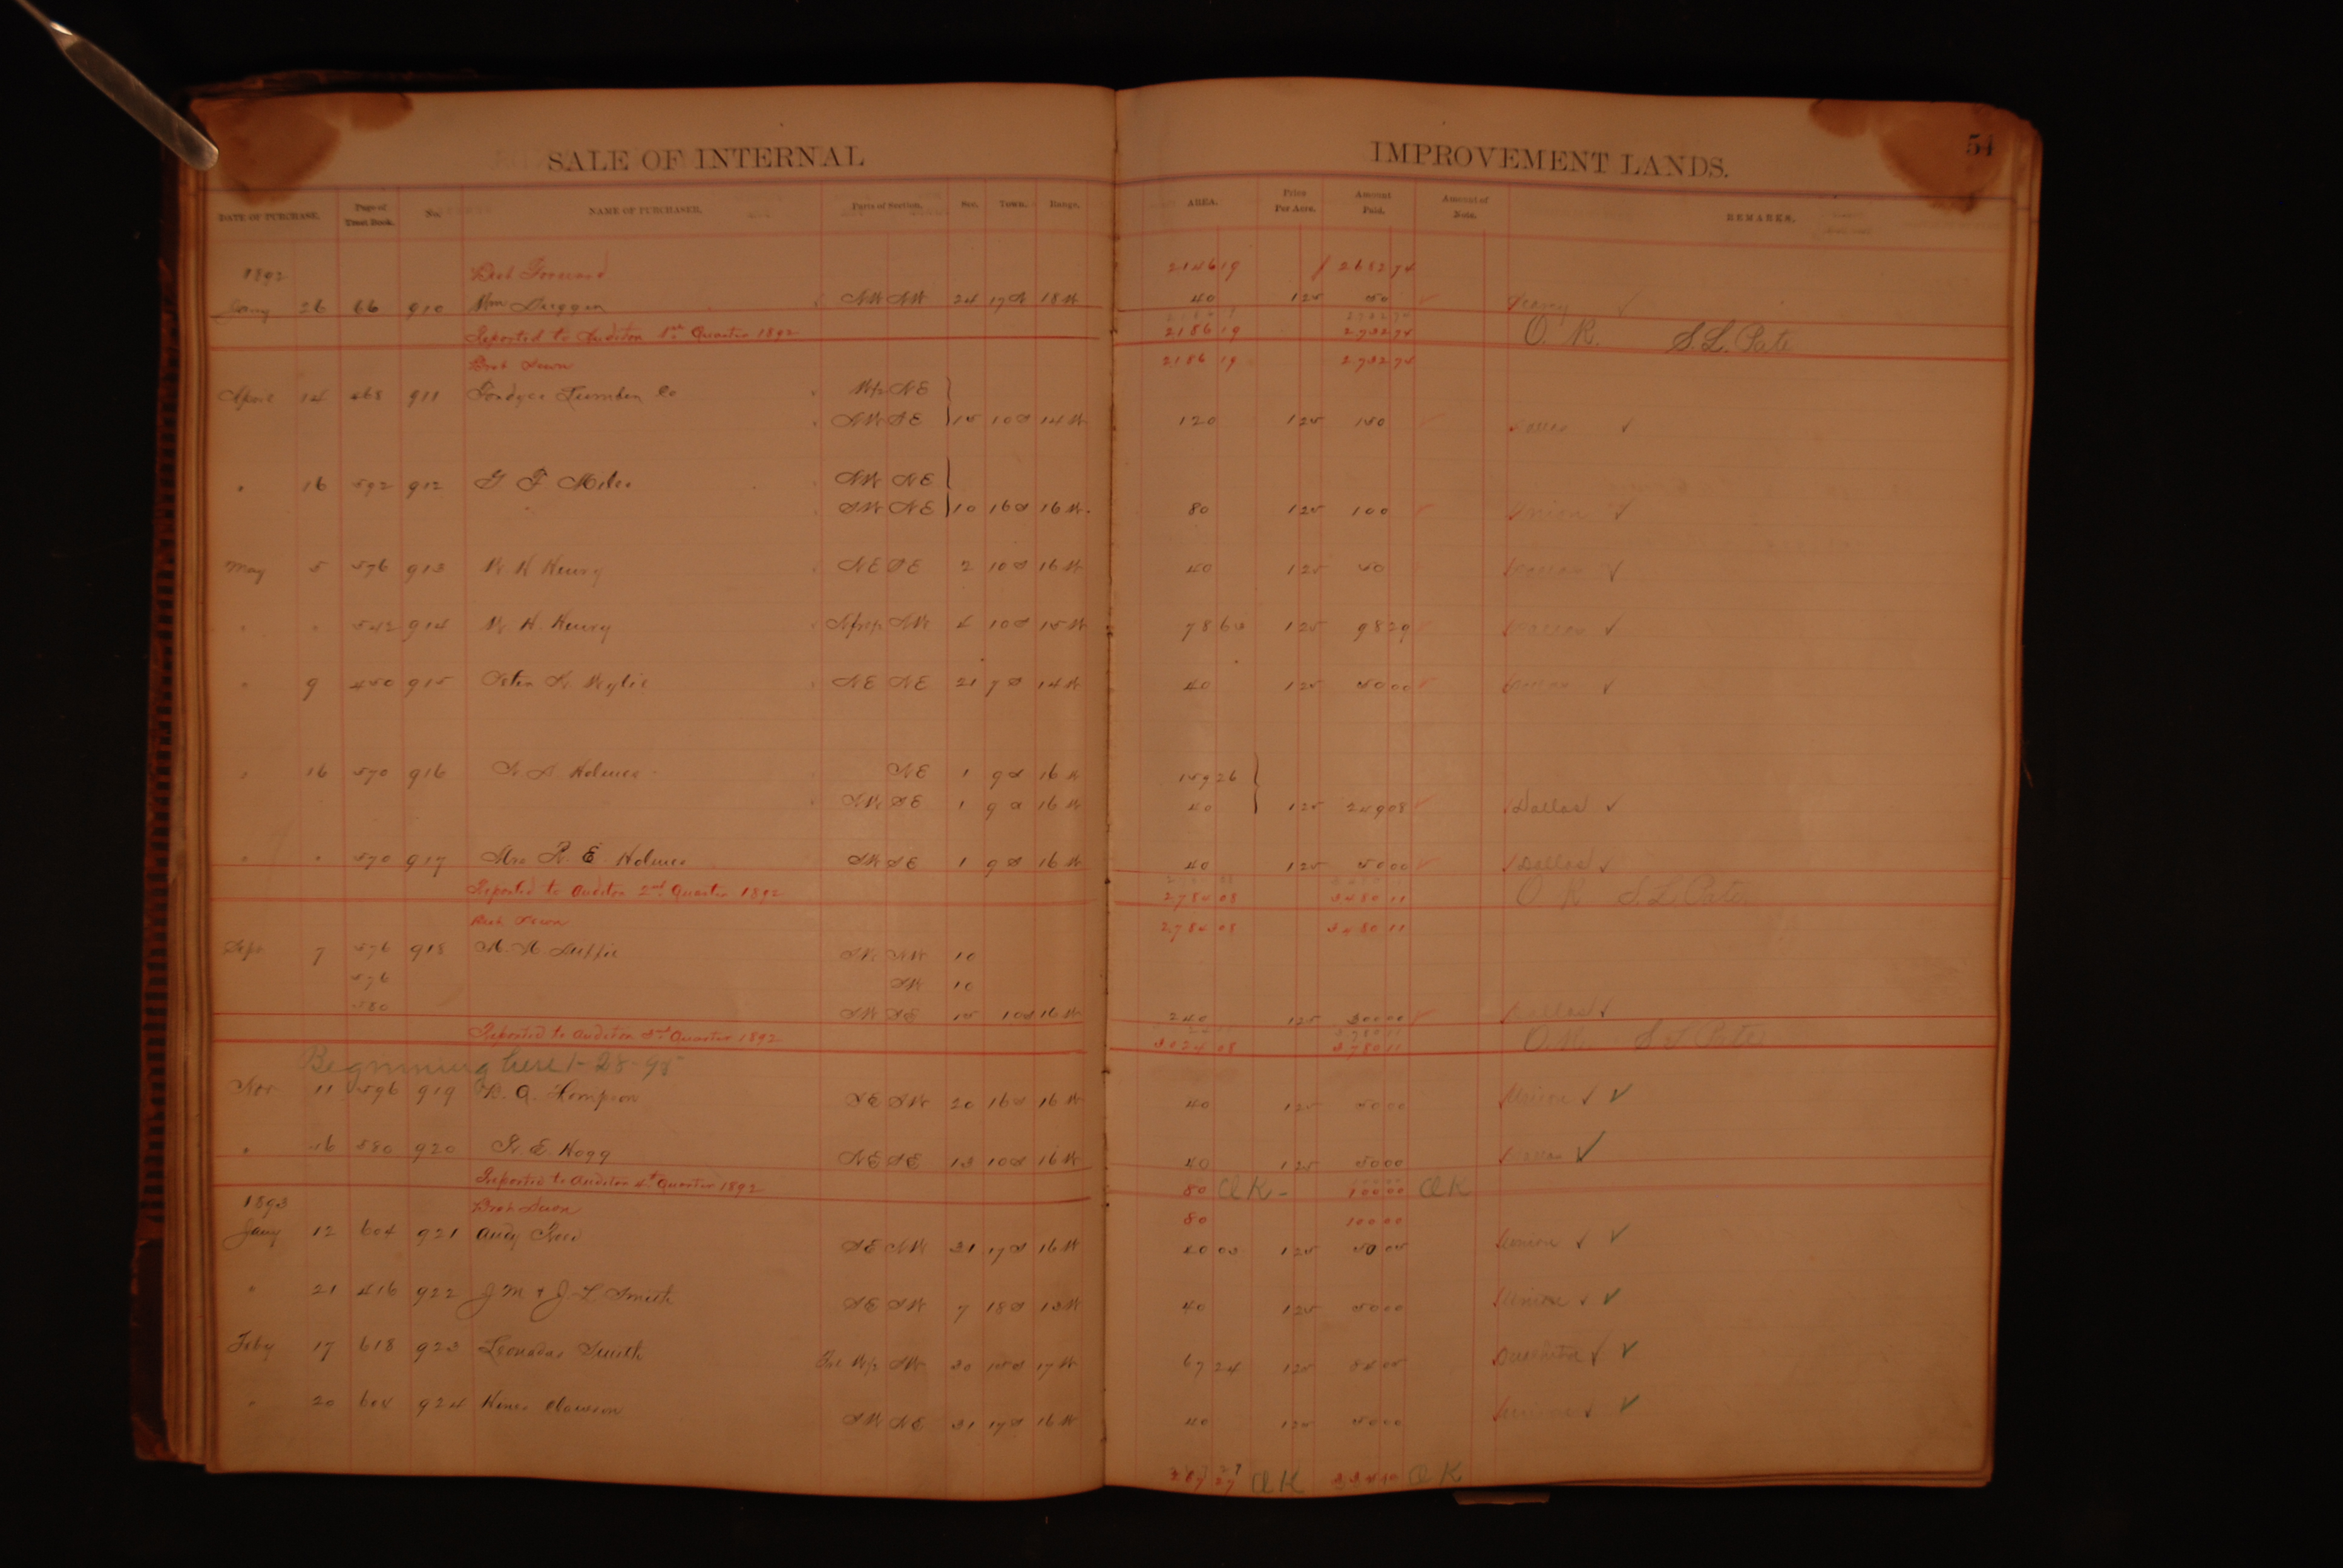 SALE OF INTERNAL IMPROVEMENT LANDS. 54
DATE OF PURCHASE. Page of Tract Book. No. NAME OF PURCHASER. Parts of Section. Sec. Town. Range. AREA. Price Per Acre. Amount Paid. Amount of Note. REMARKS.
1892 Brot Forward 2146 19 2682 74
Jany 26 66 910 Wm Duggan NW NW 24 17 N 18 W 40 1 25 50 Searcy ✓
Reported to Auditor 1st Quarter 1892 2186 19 2732 74 O. K. S. L. Pate
Brot Down 2186 19 2732 74
April 14 468 911 Fordyce Lumber Co W½ NE
NW SE 15 10 S 14 W 120 1 25 150 Dallas ✓
" 16 592 912 G F Miles NW NE
SW NE 10 16 S 16 W. 80 1 25 100 Union ✓
May 5 576 913 W H Henry NE SE 2 10 S 16 W 40 1 25 50 ✓
" " 542 914 W. H. Henry NW 4 10 S 15 W 78 63 1 25 98 29 ✓
" 9 450 915 Peter K Wylie NE NE 21 7 S 14 W 40 1 25 50 00 ✓
" 16 570 916 Holmes NE 1 9 S 16 W 159 26
NW SE 1 9 S 16 W 40 1 25 249 08 Dallas ✓
" " 570 917 Mrs R. E. Holmes SW SE 1 9 S 16 W 40 1 25 50 00 Dallas ✓
Reported to Auditor 2nd Quarter 1892 2784 08 3480 11 O. K. S. L. Pate
Brot Down 2784 08 3480 11
Sept 7 576 918 Duffie NW 10
576 SW 10
580 SW SE 15 10 S 16 W 240 1 25 300 00 Dallas ✓
Reported to Auditor 3rd Quarter 1892 3024 08 3780 11 O. K. S L Pate
Beginning here 1-28-95
Nov 11 596 919 B. A. Hempson SE SW 20 16 S 16 W 40 1 25 50 00 Union ✓ ✓
" 16 580 920 R. E. Hogg NE SE 13 10 S 16 W 40 1 25 50 00 Dallas ✓
Reported to Auditor 4th Quarter 1892 80 OK - 100 00 OK
1893 Brot Down 80 100 00
Jany 12 604 921 Andy SE NW 31 17 S 16 W 40 03 1 25 50 05 Union ✓ ✓
" 21 416 922 J M & J. L Smith SE SW 7 18 S 13 W 40 1 25 50 00 Union ✓ ✓
Feby 17 618 923 Leonidas Smith Frl W½ SW 30 15 S 17 W 67 24 1 25 84 05 Ouachita ✓ ✓
" 20 604 924 SW NE 31 17 S 16 W 40 1 25 50 00 Union ✓ ✓
267 27 OK 334 10 OK